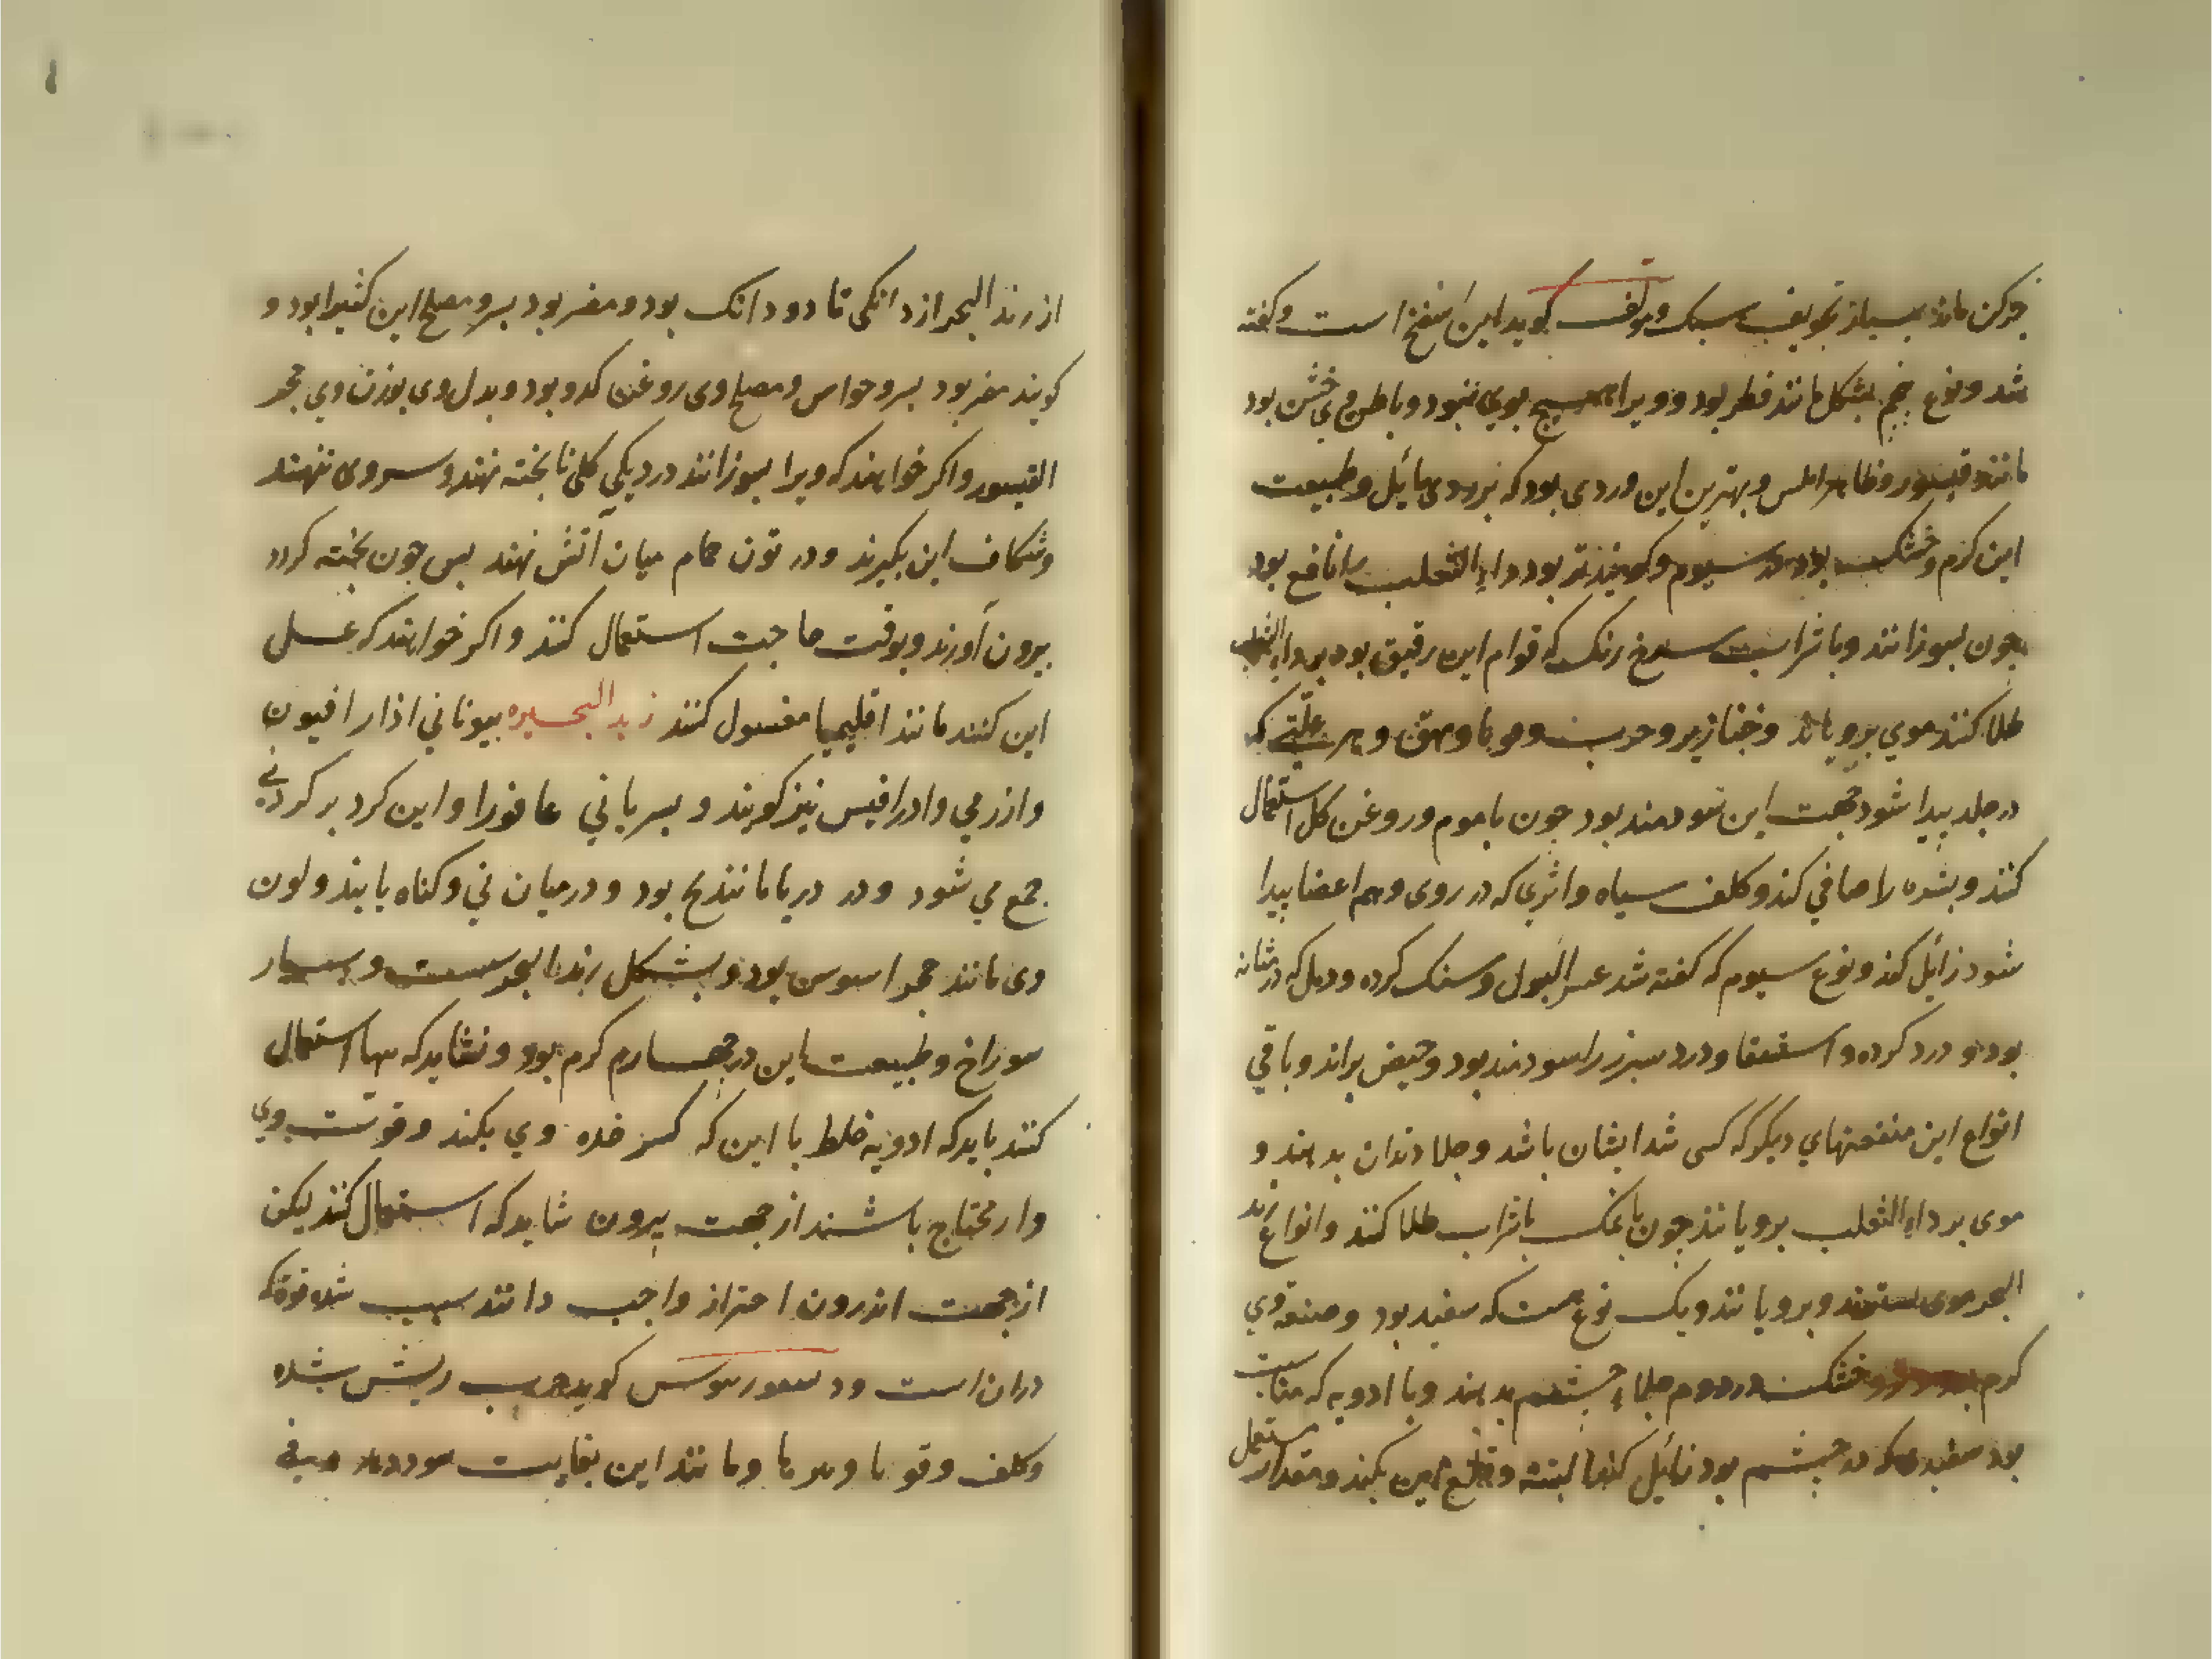 چرکن مانند بسیار تجویف سبک و مولف کوید این اسفنج است و کفته
شد و نوع پنجم بشکل مانند فطر بود و ویرا هیچ بوی نبود و باطن وی خشن بود
مانند قیسور و ظاهر املس و بهترین این وردی بود که بزردی مایل و طبیعت
این کرم و خشک بود در سیوم و کویند تر بود داء الثعلب را نافع بود
چون بسوزانند و با شراب سرخ رنک که قوام این رقیق بود بر داء الثعلب
طلا کنند موی برویاند و خنازیر و جرب و قوبا و بهق و هر علتی که
در جلد پیدا شود جهت این سودمند بود چون با موم و روغن کل استعمال
کنند و بشره را صافی کند و کلف سیاه و اثری که در روی و هم اعضا پیدا
شود زائل کند و نوع سیوم که کفته شد عسر البول و سنک کرده و رمل که در مثانه
بود و درد کرده و استسقا و درد سپرز را سودمند بود و حیض براند و باقی
انواع این منفعتهای دیکر که کسی شد ایشان باشد و جلا دندان بدهند و
موی بر داء الثعلب برویانند چون با نمک با شراب طلا کنند و انواع زبد
البحر موی بسترند و برویانند و یک نوع هست که سفید بود و صنعه وی
کرم و خشک در دوم جلاء چشم بدهند و با ادویه که مناسبت
بود سفیدی که در چشم بود زائل کند البته و قلع این بکند و مقدار مستعمل
از زبد البحر از دانکی تا دو دانک بود و مضر بود بسر و مصلح این کثیرا بود و
کویند مضر بود بسر و حواس و مصلح وی روغن کدو بود و بدل وی بوزن وی حجر
القیسور و اکر خواهند که ویرا بسوزانند در دیکی کلی نا پخته نهند و سر وی ننهند
و شکاف این بکیرند و در تون حمام میان آتش نهند پس چون پخته کردد
بیرون آورند و بوقت حاجت استعمال کنند و اکر خواهند که عسلی
این کنند مانند اقلیمیا مغسول کنند زبد البحیره بیونانی اذار افیون
و ازرمی و ادرافیس نیز کویند و بسریانی عافورا و این کرد بر کرد نی
جمع می شود و در دریا مانند یخ بود و در میان نی و کناه یابند و لون
وی مانند حجر اسوس بود و بشکل زبد البحرست و بسیار
سوراخ و طبیعت این در چهارم کرم بود و نشاید که تنها استعمال
کنند باید که ادویه خلط با این که کسر حده وی بکند و قوت وی
و ار محتاج باشند از جهت بیرون شاید که استعمال کنند لیکن
از جهت اندرون احتراز واجب دانند سبب شده قوة که
دران است کوید جرب ریش شده
و کلف و قوبا و مانند این بغایت سوددهد